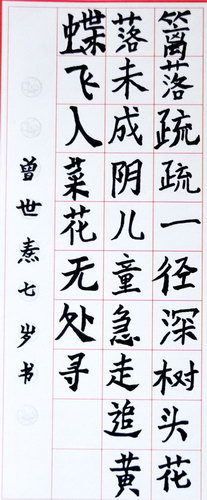 篱落疏疏一径深树头花
落未成阴儿童急走追黄
蝶飞入菜花无处寻
曾世焘七岁书